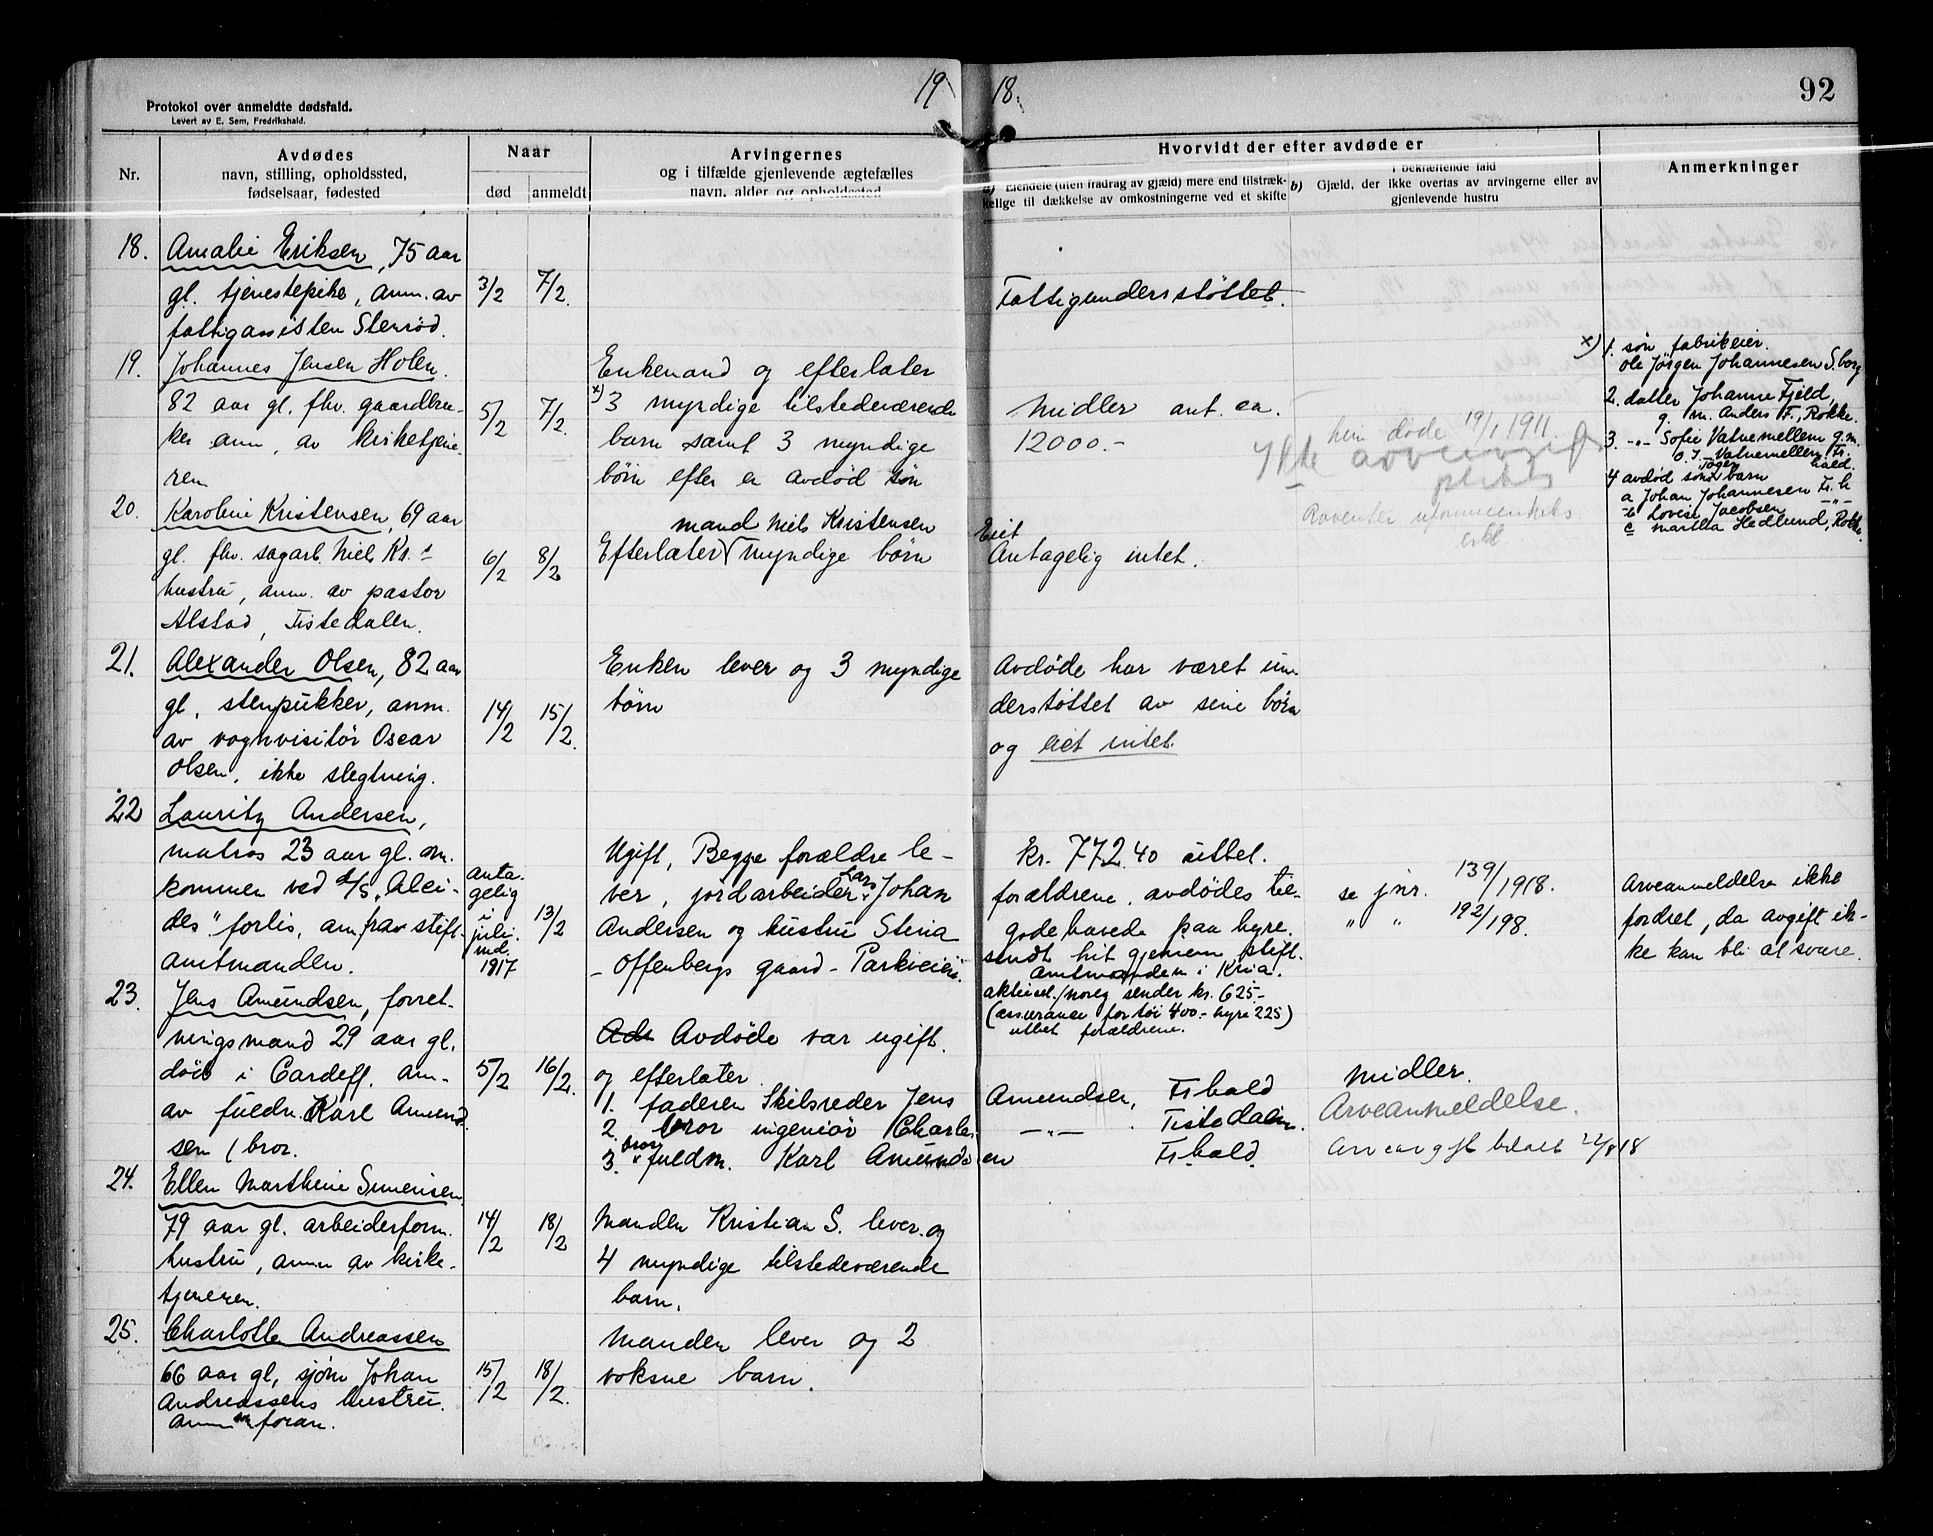 19 18.
92
Protokol over anmeldte dødsfald.
Levert av E. Sem, Fredrikshald.
Nr.
Avdødes
navn, stilling, opholdssted,
fødselsaar, fødested
Naar
død
anmeldt
Arvingernes
og i tilfælde gjenlevende ægtefælles
navn, alder og opholdssted
Hvorvidt der efter avdøde er
a) Eiendele (uten fradrag av gjæld) mere end tilstræk-
kelige til dækkelse av omkostningerne ved et skifte
I bekræftende fald
b) Gjæld, der ikke overtas av arvingerne eller av
gjenlevende hustru
Anmerkninger
18.
Amalie Eriksen, 75 aar
gl. tjenestepike, anm. av
fattigassisten Stenrød.
3/2
7/2.
Fattigunderstøttet.
19.
Johannes Jensen Holen.
82 aar gl. fhv. gaardbru-
ker anm. av kirketjene-
ren
5/2
7/2.
Enkemand og efterlater
x) 3 myndige tilstedeværende
barn samt 3 myndige
børn efter en avdød søn
Midler ant. ca.
12000.-
hun døde 19/1 1911.
x) 1. søn fabrikeier.
Ole Jørgen Johannesen S.borg
2. datter Johanne Fjeld,
g. m. Anders F., Rokke.
3. -"- Sofie Vatnemellem g.m.
O. J. Vatnemellem. Fr.
hald.
4 avdød søns barn
a Johan Johannesen Fr. h
b Lovise Jacobsen -"-
c Martha Hedlund, Rokke.
20.
Karoline Kristensen, 69 aar
gl. fhv. sagarb. Niels Kr.s
hustru, anm. av pastor
Alstad, Tistedalen.
6/2
8/2
mand Niels Kristensen
Efterlater myndige børn
Eiet
Antagelig intet.
21.
Alexander Olsen, 82 aar
gl. stenpukker, anm.
av vognvisitør Oscar
Olsen, ikke slegtning.
14/2
15/2.
Enken lever og 3 myndige
børn
Avdøde har været un-
derstøttet av sine børn
og eiet intet.
22
Lauritz Andersen,
matros 23 aar gl. om-
kommen ved d/s "Alci-
des" forlis, anm av stift-
amtmanden.
anta-
gelig
i
juli
md.
1917
13/2
Ugift, Begge forældre le-
ver, jordarbeider Lars Johan
Andersen og hustru Stina
- Offenbergs gaard - Parkveien
kr. 772.40 utbet.
forældrene, avdødes til-
godehavede paa hyre.
sendt hit gjennem stift.
amtmanden i Kria.
aktiesel. Noreg sender kr. 625.-
(assuranse for tøi 400.- hyre 225)
utbet forældrene.
se jnr. 139/1918.
" " 192/198.
Arveanmeldelse ikke
fordret, da avgift ik-
ke kan bli at svare.
23.
Jens Amundsen, forret-
ningsmand 29 aar gl.
død i Cardeff. an-
av fuldm. Karl Amund-
sen (bror.
5/2
16/2.
Avdøde var ugift.
og efterlater
1. faderen Skibsreder Jens Amundsen, Fr.hald
2. bror ingeniør Charles -"- Tistedalen.
3. bror fuldm. Karl Amundsen Fr.hald.
Midler.
Arveanmeldelse.
Arveavgift betalt 22/8 18
24.
Ellen Marthine Simensen
79 aar gl. arbeiderform.
hustru, anm av kirke-
tjeneren.
14/2
18/2
Manden Kristian S. lever og
4 myndige tilstedeværende
barn.
25.
Charlotte Andreassen
66 aar gl, sjøm Johan
Andreassens hustru.
Anm som foran.
15/2
18/2.
Manden lever og 2
voksne barn.